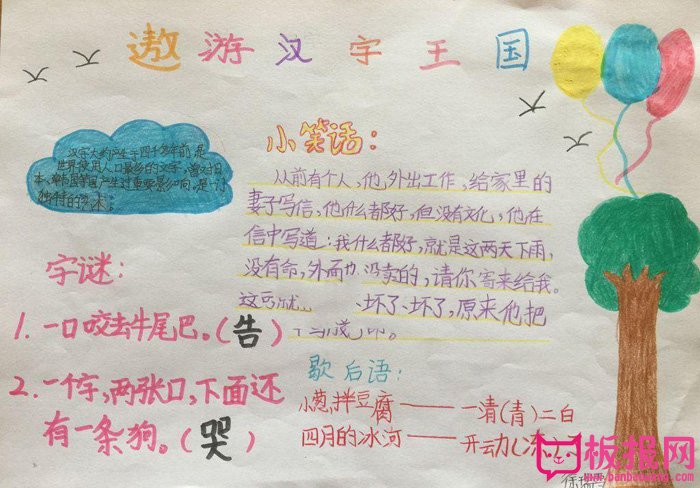 遨游汉字王国
汉字大约产生于四千多年前,是
世界使用人口最多的文字,曾对日
本、韩国等国产生过重要影响,是一门
独特的艺术。
小笑话:
从前有个人,他外出工作,给家里的
妻子写信,他什么都好,但没有文化,他在
信中写道:我什么都好,就是这两天下雨,
没有命,外面也没卖的,请你寄来给我。
这可 坏了、坏了,原来他把
命。
字谜:
1.一口咬去牛尾巴。(告)
2.一个字,两张口,下面还
有一条狗。(哭)
歇后语:
小葱拌豆腐——一清(青)二白
四月的冰河——开动(冻
板报网
www.banbaowang.com